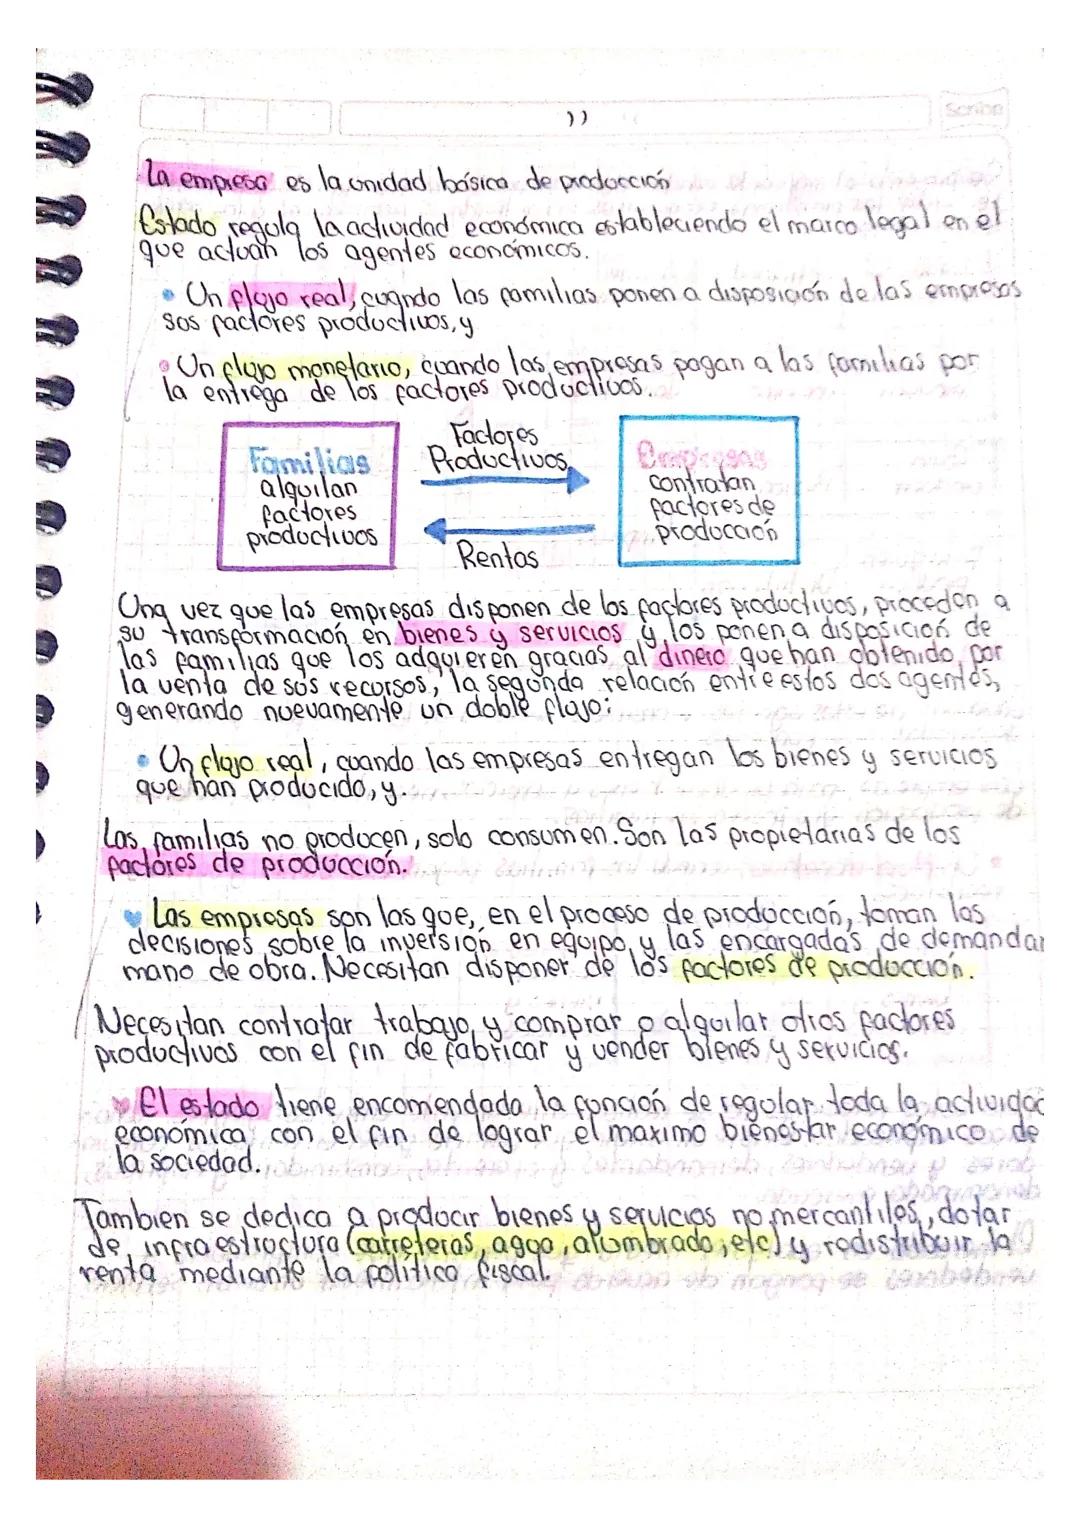 Scribe
))
La empresa es la unidad básica de producción
Estado regula la actividad económica estableciendo el marco legal en el
que actúan los agentes económicos.
• Un flujo real, cuando las familias ponen a disposición de las empresas
sus factores productivos, y
• Un flujo monetario, cuando las empresas pagan a las familias por
la entrega de los factores productivos.
Familias
alquilan
factores
productivos
Factores
Productivos
Rentas
Empresas
contratan
factores de
producción
Una vez que las empresas disponen de los factores productivos, proceden a
su transformación en bienes y servicios y los ponen a disposición de
las familias que los adquieren gracias al dinero que han obtenido por
la venta de sus recursos, la segunda relación entre estos dos agentes,
generando nuevamente un doble flujo:
• Un flujo real, cuando las empresas entregan los bienes y servicios
que han producido, y.
Las familias no producen, solo consumen. Son las propietarias de los
factores de producción.
Las empresas son las que, en el proceso de producción, toman las
decisiones sobre la inversión en equipo, y las encargadas de demandar
mano de obra. Necesitan disponer de los factores de producción.
Necesitan contratar trabajo, y comprar o alquilar otros factores
productivos con el fin de fabricar y vender bienes y servicios.
El estado tiene encomendada la función de regular toda la actividad
económica con el fin de lograr el maximo bienestar económico de
la sociedad.
Tambien se dedica a producir bienes y servicios no mercantiles, dotar
de infraestructura (carreteras, agua, alumbrado, etc) y redistribuir la
renta mediante la politica fiscal.